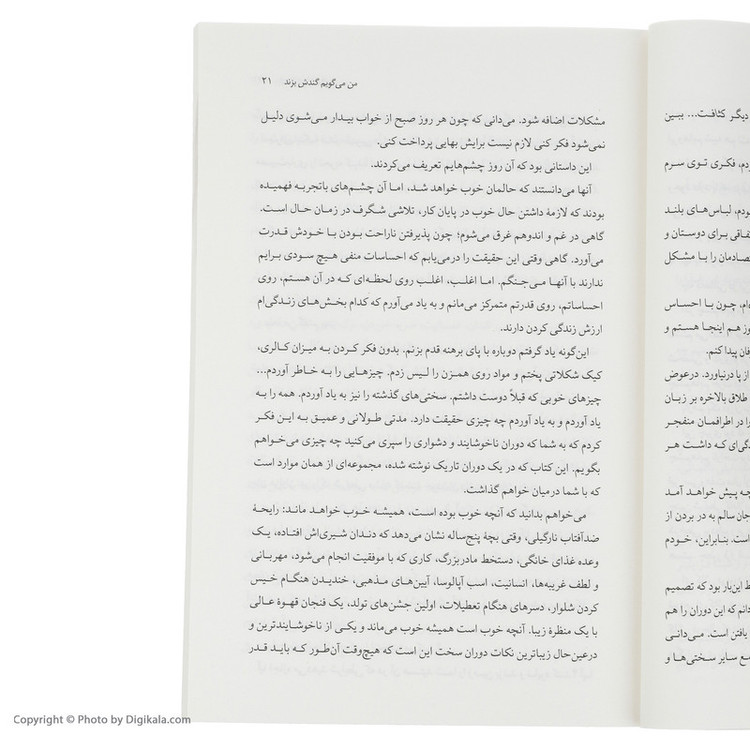 من می‌گویم گندش بزند ۲۱
مشکلات اضافه شود. می‌دانی که چون هر روز صبح از خواب بیدار می‌شوی دلیل
نمی‌شود فکر کنی لازم نیست برایش بهایی پرداخت کنی.
این داستانی بود که آن روز چشم‌هایم تعریف می‌کردند.
آنها می‌دانستند که حالمان خوب خواهد شد، اما آن چشم‌های باتجربه فهمیده
بودند که لازمهٔ داشتن حال خوب در پایان کار، تلاشی شگرف در زمان حال است.
گاهی در غم و اندوهم غرق می‌شوم؛ چون پذیرفتن ناراحت بودن با خودش قدرت
می‌آورد. گاهی وقتی این حقیقت را درمی‌یابم که احساسات منفی هیچ سودی برایم
ندارند با آنها می‌جنگم. اما اغلب، اغلب روی لحظه‌ای که در آن هستم، روی
احساساتم، روی قدرتم متمرکز می‌مانم و به یاد می‌آورم که کدام بخش‌های زندگی‌ام
ارزش زندگی کردن دارند.
این‌گونه یاد گرفتم دوباره با پای برهنه قدم بزنم. بدون فکر کردن به میزان کالری،
کیک شکلاتی پختم و مواد روی همزن را لیس زدم. چیزهایی را به خاطر آوردم...
چیزهای خوبی که قبلاً دوست داشتم. سختی‌های گذشته را نیز به یاد آوردم. همه را به
یاد آوردم و به یاد آوردم چه چیزی حقیقت دارد. مدتی طولانی و عمیق به این فکر
کردم که به شما که دوران ناخوشایند و دشواری را سپری می‌کنید چه چیزی می‌خواهم
بگویم. این کتاب که در یک دوران تاریک نوشته شده، مجموعه‌ای از همان موارد است
که با شما درمیان خواهم گذاشت.
می‌خواهم بدانید که آنچه خوب بوده است، همیشه خوب خواهد ماند: رایحهٔ
ضدآفتاب نارگیلی، وقتی بچهٔ پنج‌ساله نشان می‌دهد که دندان شیری‌اش افتاده، یک
وعده غذای خانگی، دستخط مادربزرگ، کاری که با موفقیت انجام می‌شود، مهربانی
و لطف غریبه‌ها، انسانیت، اسب آپالوسا، آیین‌های مذهبی، خندیدن هنگام خیس
کردن شلوار، دسرهای هنگام تعطیلات، اولین جشن‌های تولد، یک فنجان قهوهٔ عالی
با یک منظرهٔ زیبا. آنچه خوب است همیشه خوب می‌ماند و یکی از ناخوشایندترین و
درعین‌حال زیباترین نکات دوران سخت این است که هیچ‌وقت آن‌طور که باید قدر
دیگر کثافت... ببین
دم، فکری توی سرم
ودم، لباس‌های بلند
فاقی برای دوستان و
تصادمان را با مشکل
ه‌ام، چون با احساس
وز هم اینجا هستم و
فان پیدا کنم.
از پا درنیاورد. درعوض
طلاق بالاخره بر زبان
را در اطرافمان منفجر
دگی‌ای که داشت هر
چه پیش خواهد آمد
جان سالم به در بردن از
است. بنابراین، خودم
ط این‌بار بود که تصمیم
دانم که این دوران را هم
یافتن است. می‌دانی
مع سایر سختی‌ها و
Copyright © Photo by Digikala.com